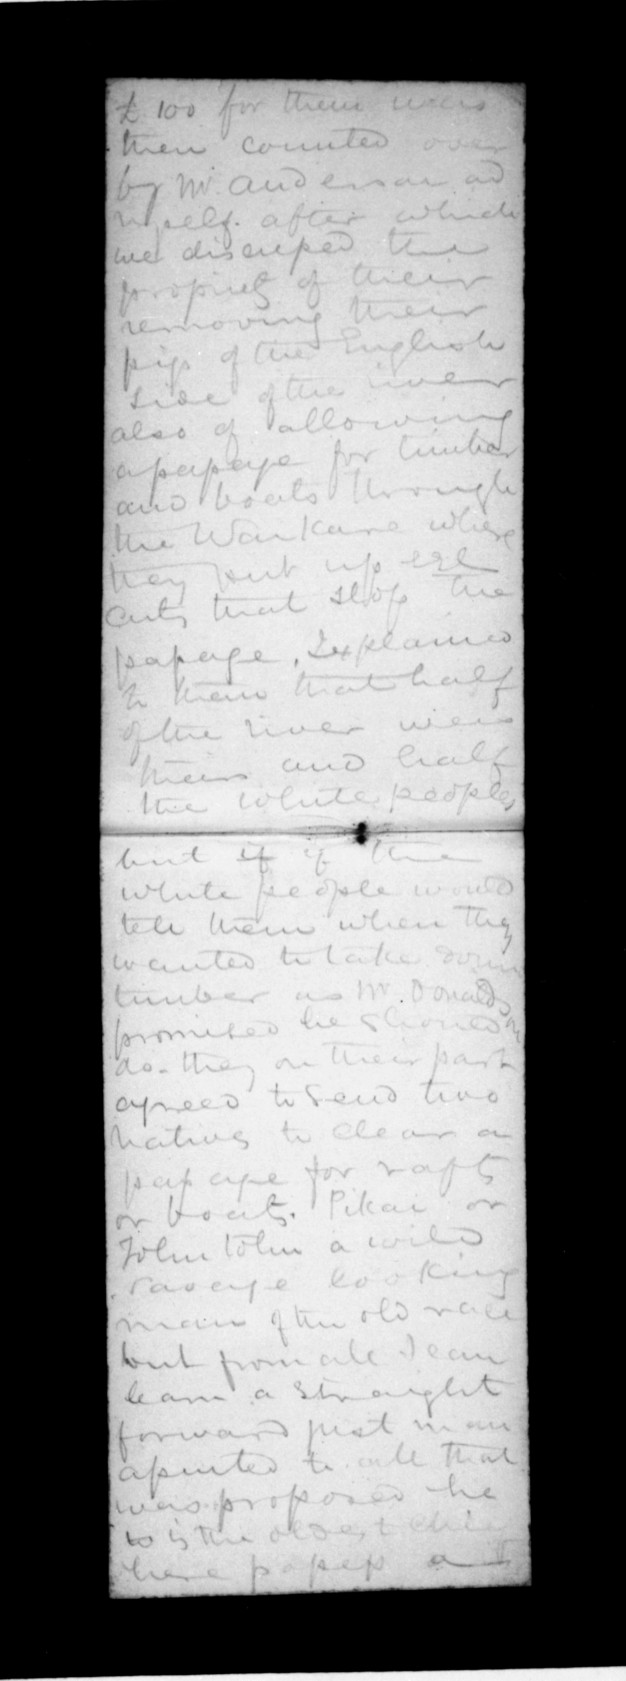 £100 for them was
then counted over
by Mr. Anderson and
myself. after which
we discussed the
propriety of their
removing their
pigs of the English
side of the river
also of allowing
a passage for timber
and boats through
the Waikare where
they put up eel
cuts that stop the
passage, I explained
to them that half
of the river was
theirs and half
the white peoples
but if if the
white people would
tell them when they
wanted to take down
timber as Mr. Donaldson
promised he should
do. they on their part
agreed to send two
natives to clear a
passage for rafts
or boats. Pikai or
John tohu a wild
savage looking
man of the old race
but from all I can
learn a straight
forward just man
assented to all that
was proposed he
is the oldest chief
here possess a